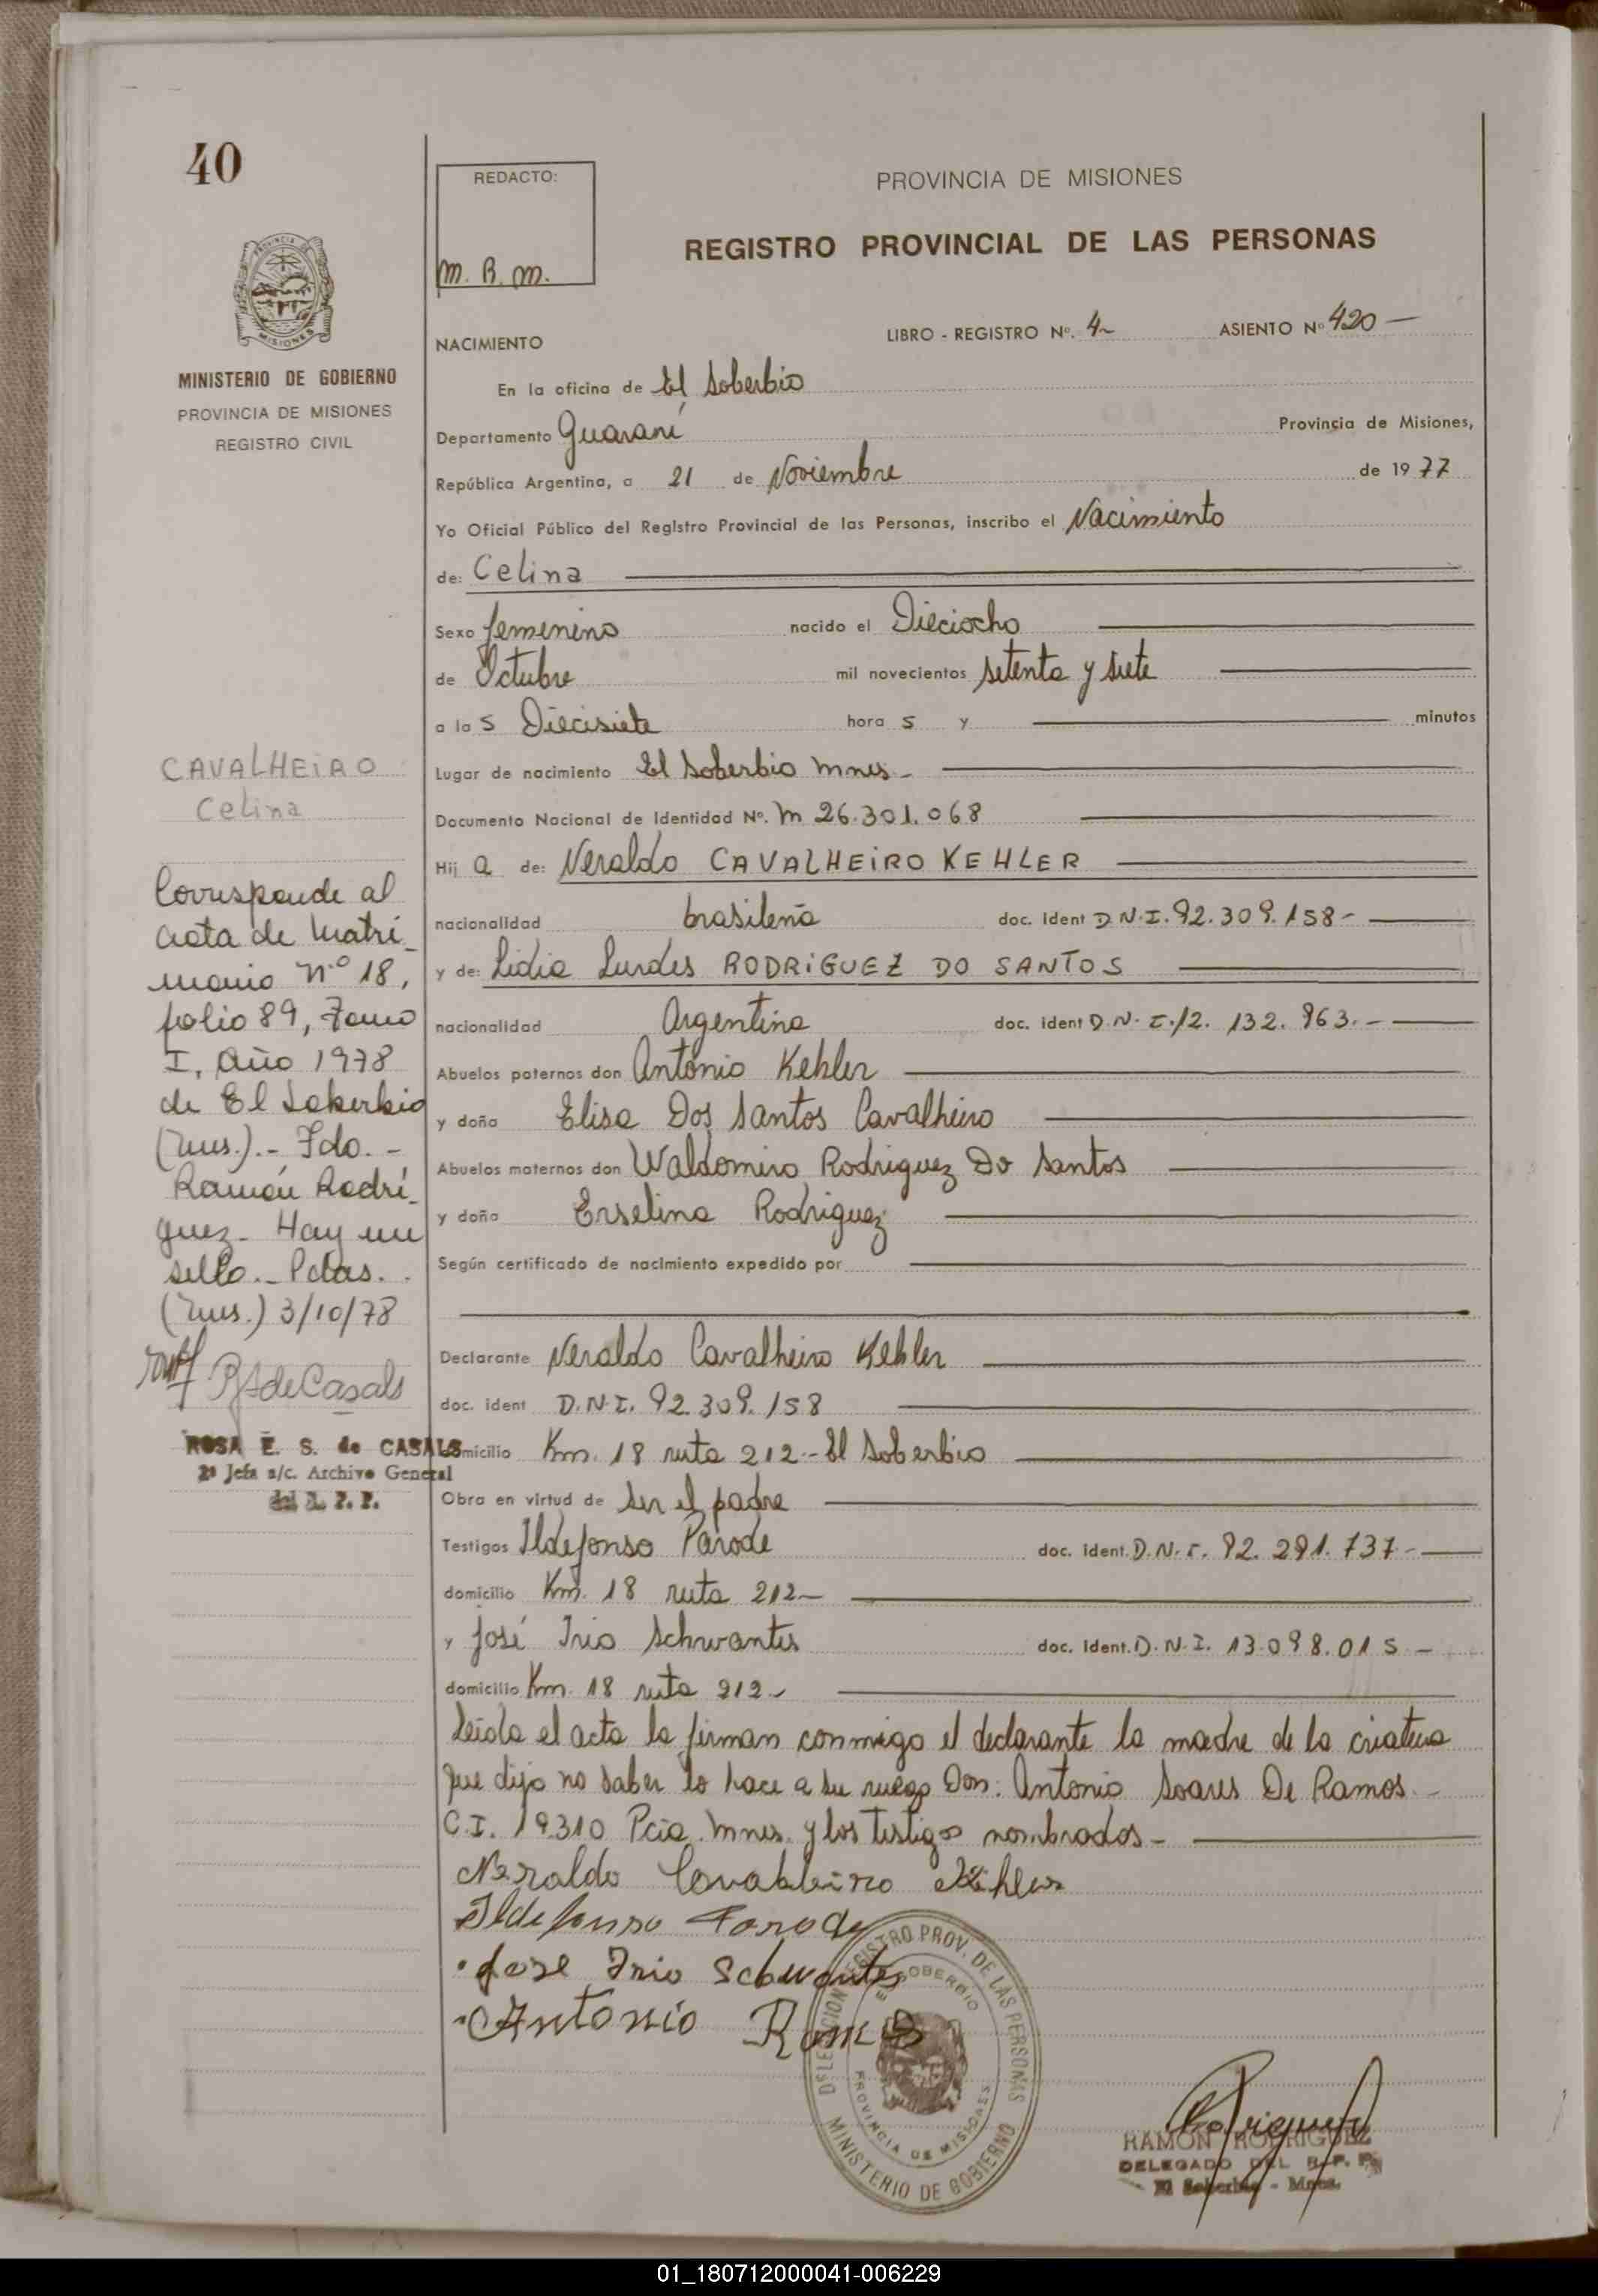 40
MINISTERIO DE GOBIERNO
PROVINCIA DE MISIONES
REGISTRO CIVIL
CAVALHEIRO
Celina
Corresponde al
acta de Matri-
monio nº 18,
folio 89, Tomo
I, Año 1978
de El Soberbio
(Mns.).- Fdo. -
Ramón Rodrí-
guez- Hay un
sello.- Pdas.
(Mns.) 3/10/78
ROSA E. S. de CASALS
2ª Jefa a/c. Archivo General
del R. P. P.
REDACTO:
M. B. M.
PROVINCIA DE MISIONES
REGISTRO PROVINCIAL DE LAS PERSONAS
NACIMIENTO LIBRO - REGISTRO Nº. 4- ASIENTO Nº 420 -
En la oficina de El Soberbio
Departamento Guaraní Provincia de Misiones,
República Argentina, a 21 de Noviembre de 1977
Yo Oficial Público del Registro Provincial de las Personas, inscribo el Nacimiento
de: Celina
Sexo femenino nacido el Dieciocho
de Octubre mil novecientos setenta y siete
a las Diecisiete horas y minutos
Lugar de nacimiento El Soberbio Mnes-
Documento Nacional de Identidad Nº. M 26.301.068
Hija de: Neraldo CAVALHEIRO KEHLER
nacionalidad brasileña doc. ident D.N.I. 92.309.158-
y de: Lidia Lurdes RODRIGUEZ DO SANTOS
nacionalidad Argentina doc. ident D.N.I. 12.132.963.-
Abuelos paternos don Antonio Kehler
y doña Elisa Dos Santos Cavalheiro
Abuelos maternos don Waldomiro Rodriguez Do Santos
y doña Erselina Rodriguez
Según certificado de nacimiento expedido por
Declarante Neraldo Cavalheiro Kehler
doc. ident D.N.I. 92.309.158
domicilio Km. 18 ruta 212-El Soberbio
Obra en virtud de ser el padre
Testigos Ildefonso Parode doc. ident. D.N.I. 92.291.737-
domicilio Km. 18 ruta 212-
y José Irio Schwantes doc. ident. D.N.I. 13.098.015-
domicilio Km. 18 ruta 212-
Leida el acta la firman conmigo el declarante la madre de la criatura
que dijo no saber lo hace a su ruego Don: Antonio Soares De Ramos.-
C.I. 19310 Pcia. Mnes. y los testigos nombrados-
Neraldo Cavalheiro Kehler
Ildefonso Parode
Jose Irio Schwantes
Antonio Ramos
DELEGACION REGISTRO PROV. DE LAS PERSONAS
EL SOBERBIO
PROVINCIA DE MISIONES
MINISTERIO DE GOBIERNO
RAMON RODRIGUEZ
DELEGADO DEL R. P. P.
El Soberbio - Mnes.
01_180712000041-006229